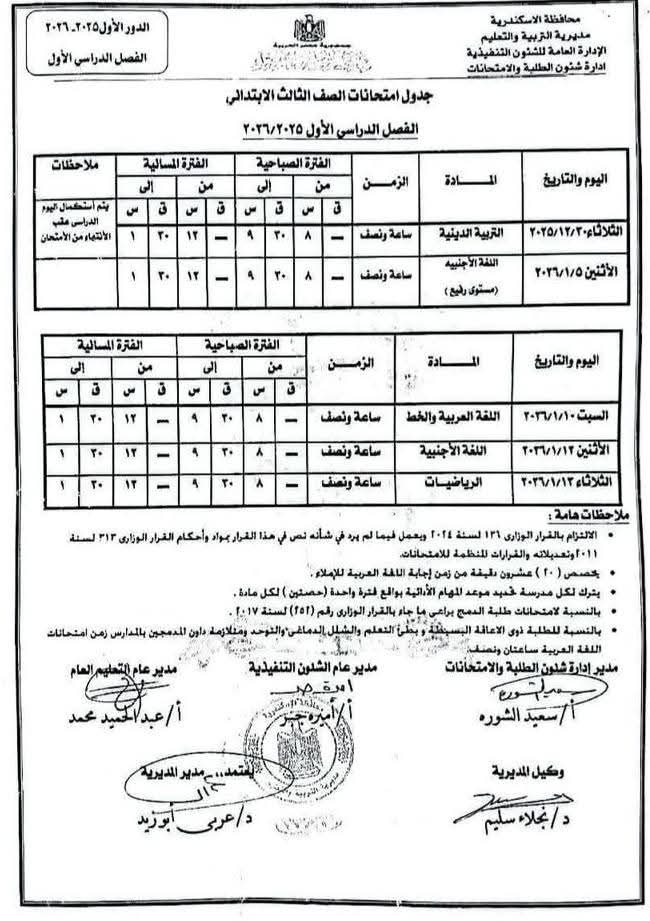 محافظة الاسكندرية
مديرية التربية والتعليم
الإدارة العامة للشئون التنفيذية
ادارة شئون الطلبة والامتحانات
جمهورية مصر العربية
الدور الأول ٢٠٢٥ـ٢٠٢٦
الفصل الدراسي الأول
جدول امتحانات الصف الثالث الابتدائي
الفصل الدراسي الأول ٢٠٢٦/٢٠٢٥
اليوم والتاريخ المــادة الزمــن الفترة الصباحية الفترة المسائية ملاحظات
من إلى من إلى
ق س ق س ق س ق س
يتم أستكمال اليوم
الدراسى عقب
الأنتهاء من الأمتحان
الثلاثاء ٢٠٢٥/١٢/٣٠ التربية الدينية ساعة ونصف ـــ ٨ ٣٠ ٩ ـــ ١٢ ٣٠ ١
الأثنين ٢٠٢٦/١/٥ اللغة الأجنبيه (مستوى رفيع) ساعة ونصف ـــ ٨ ٣٠ ٩ ـــ ١٢ ٣٠ ١
اليوم والتاريخ المــادة الزمــن الفترة الصباحية الفترة المسائية
من إلى من إلى
ق س ق س ق س ق س
السبت ٢٠٢٦/١/١٠ اللغة العربية والخط ساعة ونصف ـــ ٨ ٣٠ ٩ ـــ ١٢ ٣٠ ١
الأثنين ٢٠٢٦/١/١٢ اللغة الأجنبية ساعة ونصف ـــ ٨ ٣٠ ٩ ـــ ١٢ ٣٠ ١
الثلاثاء ٢٠٢٦/١/١٣ الرياضيات ساعة ونصف ـــ ٨ ٣٠ ٩ ـــ ١٢ ٣٠ ١
ملاحظات هامة :
• الالتزام بالقرار الوزارى ١٣٦ لسنة ٢٠٢٤ ويعمل فيما لم يرد في شأنه نص في هذا القرار بمواد وأحكام القرار الوزارى ٣١٣ لسنة
٢٠١١ وتعديلاته والقرارات المنظمة للامتحانات.
• يخصص (٢٠) عشرون دقيقة من زمن إجابة اللغة العربية للإملاء .
• يترك لكل مدرسة تحديد موعد المهام الأدائية بواقع فترة واحدة (حصتين) لكل مادة .
• بالنسبة لامتحانات طلبة الدمج يراعى ما جاء بالقرار الوزارى رقم (٢٥٢) لسنة ٢٠١٧ .
• بالنسبة للطلبة ذوى الاعاقة البسيطة و بطئ التعلم والشلل الدماغى والتوحد ومتلازمة داون المدمجين بالمدارس زمن امتحانات
اللغة العربية ساعتان ونصف.
مدير إدارة شئون الطلبة والامتحانات مدير عام الشئون التنفيذية مدير عام التعليم العام
أ/ سعيد الشوره أ/ أميره جبر أ/ عبد الحميد محمد
وكيل المديرية يعتمد،، مدير المديرية
د/ نجلاء سليم د/ عربى أبوزيد